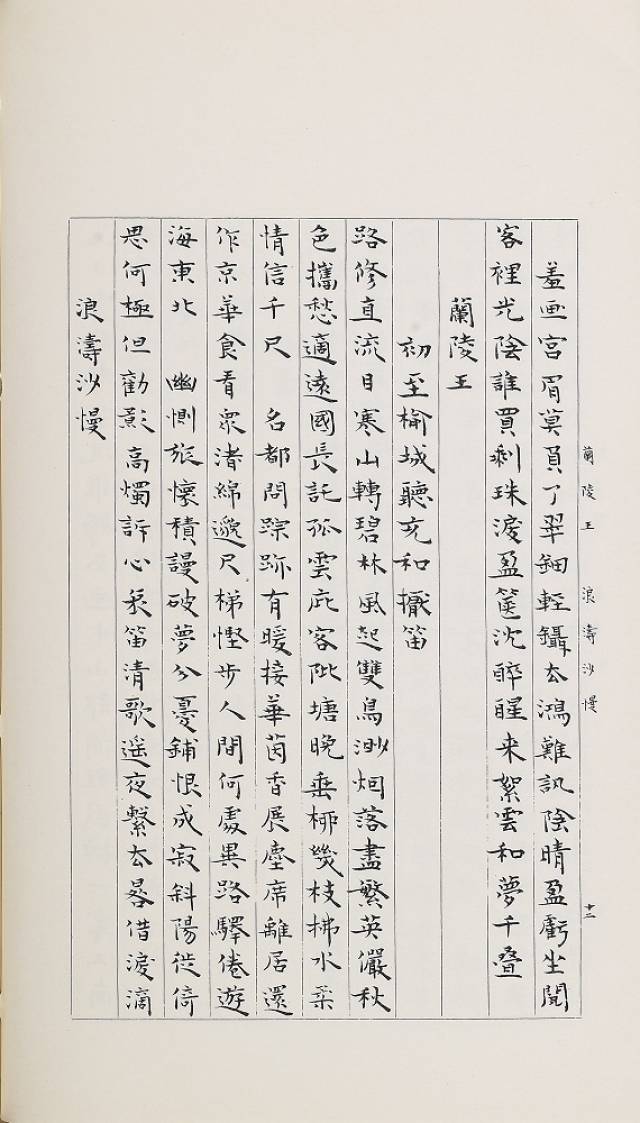 蘭陵王　浪濤沙慢　十二
羞画宮眉莫負了翠鈿輕鑷去鴻難訊陰晴盈虧坐聞
客裡光陰誰買剩珠淚盈篋沈醉醒来絮雲和夢千疊
蘭陵王
初至榆城聽充和擫笛
路修直流目寒山轉碧林風起雙鳥渺烟落盡繁英儼秋
色攜愁適遠國長託孤雲庇客陂塘晚垂柳幾枝拂水柔
情信千尺　名都問踪跡有暖接華茵香展塵席離居還
作京華食看衆渚綿邈尺梯慳步人間何處異路驛倦遊
海東北　幽惻旅懷積謾破夢分憂鋪恨成寂斜陽徙倚
思何極但勸影高燭訴心哀笛清歌遥夜繫去晷借淚滴
浪濤沙慢